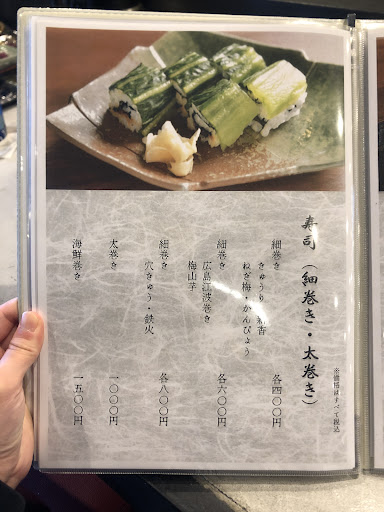 寿司（細巻き・太巻き）
※価格はすべて税込
細巻き
きゅうり・新香
ねぎ梅・かんぴょう
各四〇〇円
細巻き
広島江波巻き
梅山芋
各六〇〇円
細巻き
穴きゅう・鉄火
各八〇〇円
太巻き
一〇〇〇円
海鮮巻き
一五〇〇円